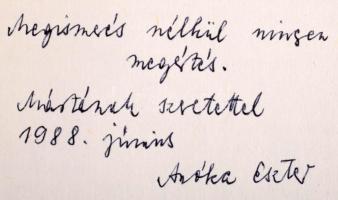 Megismerés nélkül nincsen
megértés.
Mártának szeretettel
1988. június
Anóka Eszter